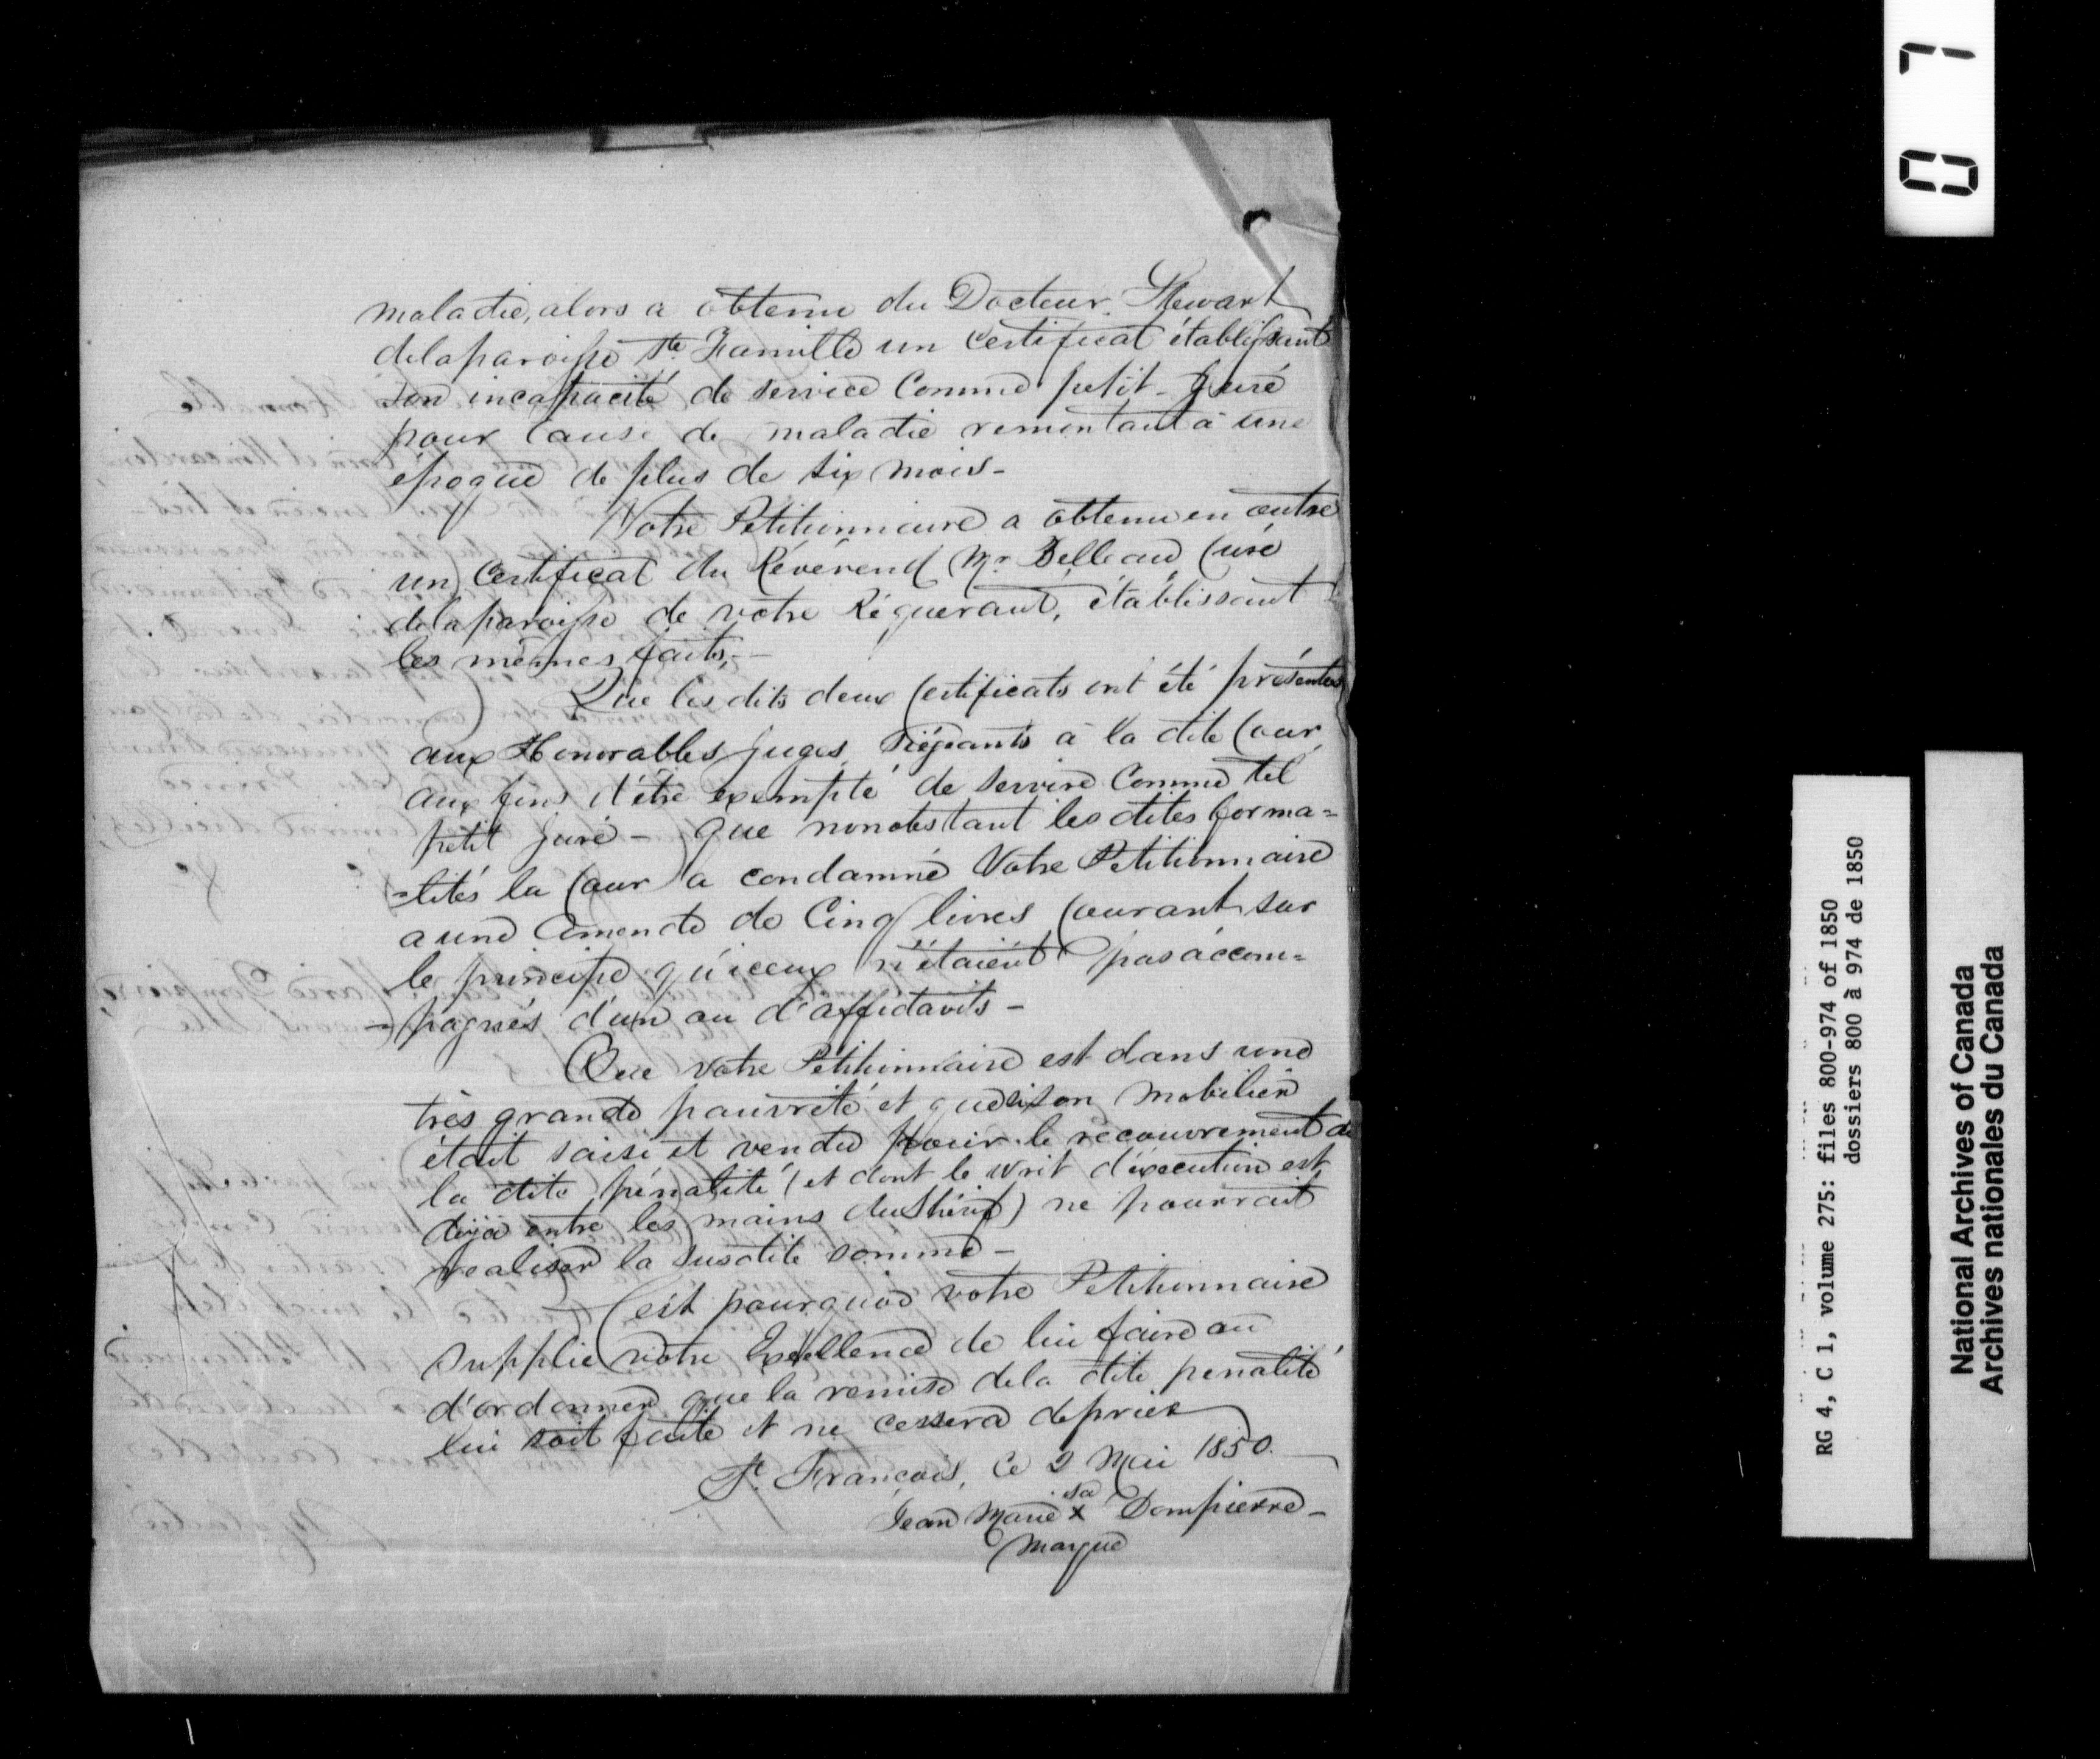 maladie, alors a obtenu du Docteur Stewart
delaparoisse Ste. Famille un Certificat établissant
son incapacité de service Comme petit-Juré
pour Cause de maladie remontant à une
époque de plus de six mois-
Votre Petitionnaire a obtenu en outre
un Certificat du Révérend Mr. Belleau Curé
delaparoisse de votre Réquerant, établissant
les mêmes faits,-
Que les dits deux Certificats ont été présentés
aux Honorables Juges, Siégeants à la dite Cour
aux fins d'être exempté de servire Comme tel
petit Juré - que nonobstant les dites forma=
=lités la Cour a condamné Votre Petitionnaire
a une Amende de Cinq livres Courant sur
le principe qu'iceux n'étaient pas accom=
=pagnés d'un ou d'affidavits-
Que votre Pétitionnaire est dans une
très grande pauvreté et que si son mobilier
était saisi et vendu pour le recouvrement de
la dite pénalité (et dont le writ d'éxecution est
déja entre les mains du Shérif) ne pourrait
realiser la susdite somme-
C'est pourquoi votre Petitionnaire
supplie votre Excellence de lui faire ou
d'ordonner que la remise dela dite penalité
lui soit faite et ne cessera deprier
St. François, Ce 2 Mai 1850.
sa
Jean Marie x Dompierre-
Marque
07
RG 4, C 1, volume 275: files 800-974 of 1850
dossiers 800 à 974 de 1850
National Archives of Canada
Archives nationales du Canada